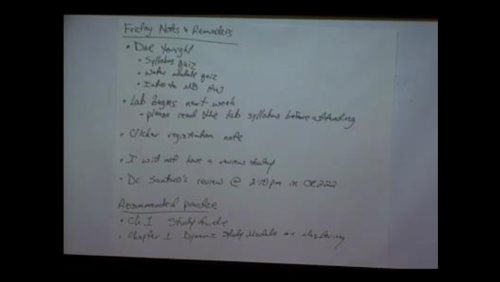 Friday Notes & Reminders
• Due tonight
• Syllabus quiz
• Water module quiz
• Intro to MB HW
• Lab begins next week
- please read the lab syllabus before attending
• Clicker registration note
• I will not have a review today
• Dr. Santoro's review @ in
Recommended practice
• Ch 1 Study Guide
• Chapter 1 Dynamic Study Modules on Mastering